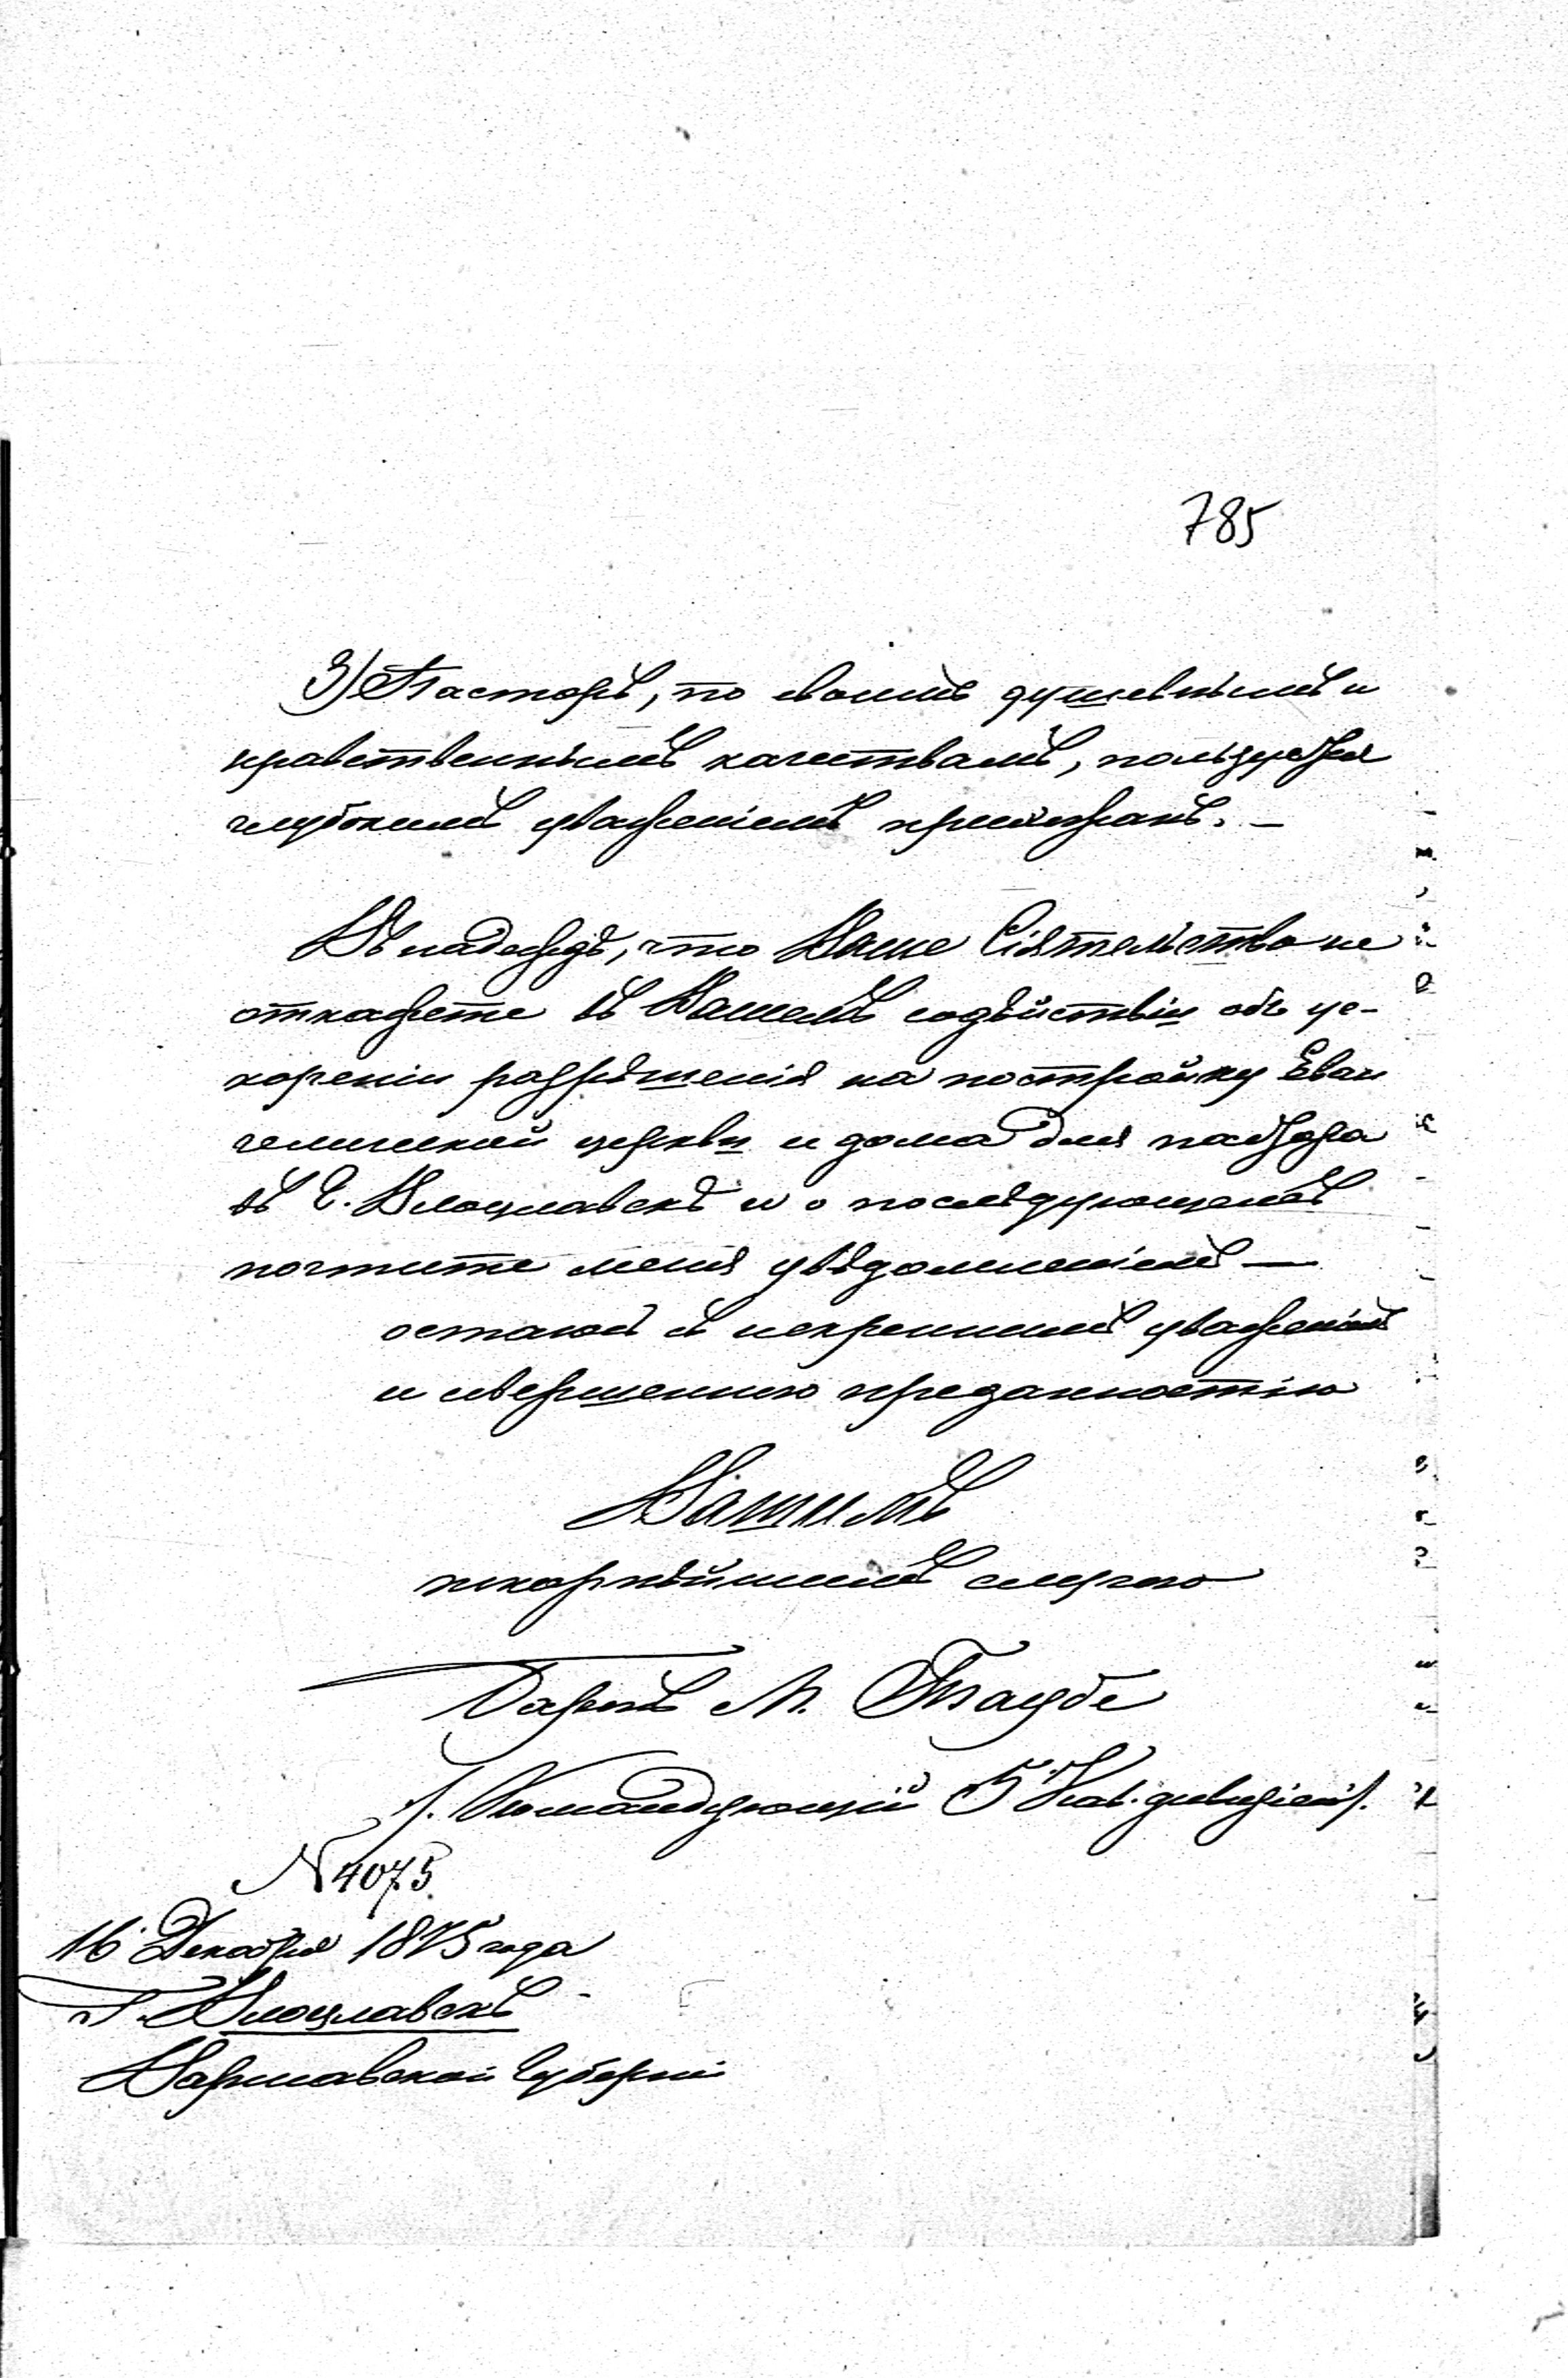 785
3) Пасторъ, по своимъ душевнымъ и
нравственнымъ качествамъ, пользуется
глубокимъ уваженіемъ прихожанъ. —
Въ надеждѣ, что Ваше Сіятельство не
откажете въ Вашемъ содѣйствіи объ ус-
кореніи разрѣшенія на постройку Еван
гелической церкви и дома для пастора
въ г. Влоцлавскѣ и о послѣдующемъ
почтите меня увѣдомленіемъ —
остаюсь съ искреннимъ уваженіемъ
и совершенною преданностію
Вашимъ
покорнѣйшимъ слугою
Баронъ М. Таубе
/. Командующій 5 Кав. дивизіей /.
N 4075.
16 Декабря 1875 года
Г. Влоцлавскъ
Варшавской Губерніи